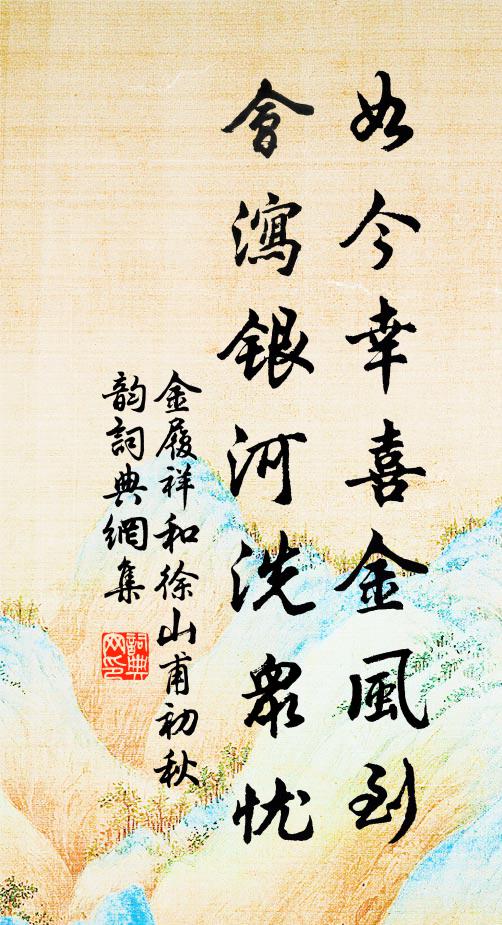 如今幸喜金風到
會瀉銀河洗眾忧
金履祥和徐山甫初秋
韵詞典網集
詞典网印